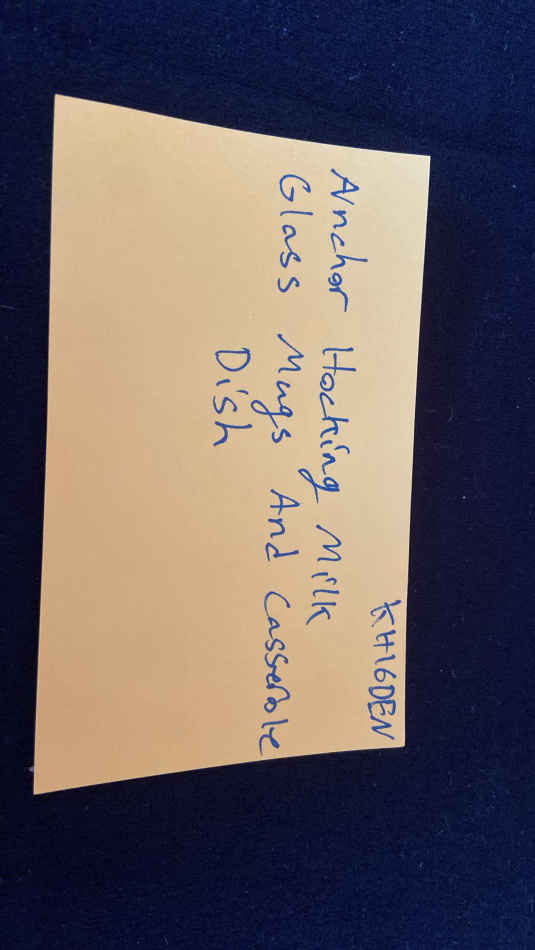 KH16DEN
Anchor Hocking Milk
Glass Mugs And Casserole
Dish